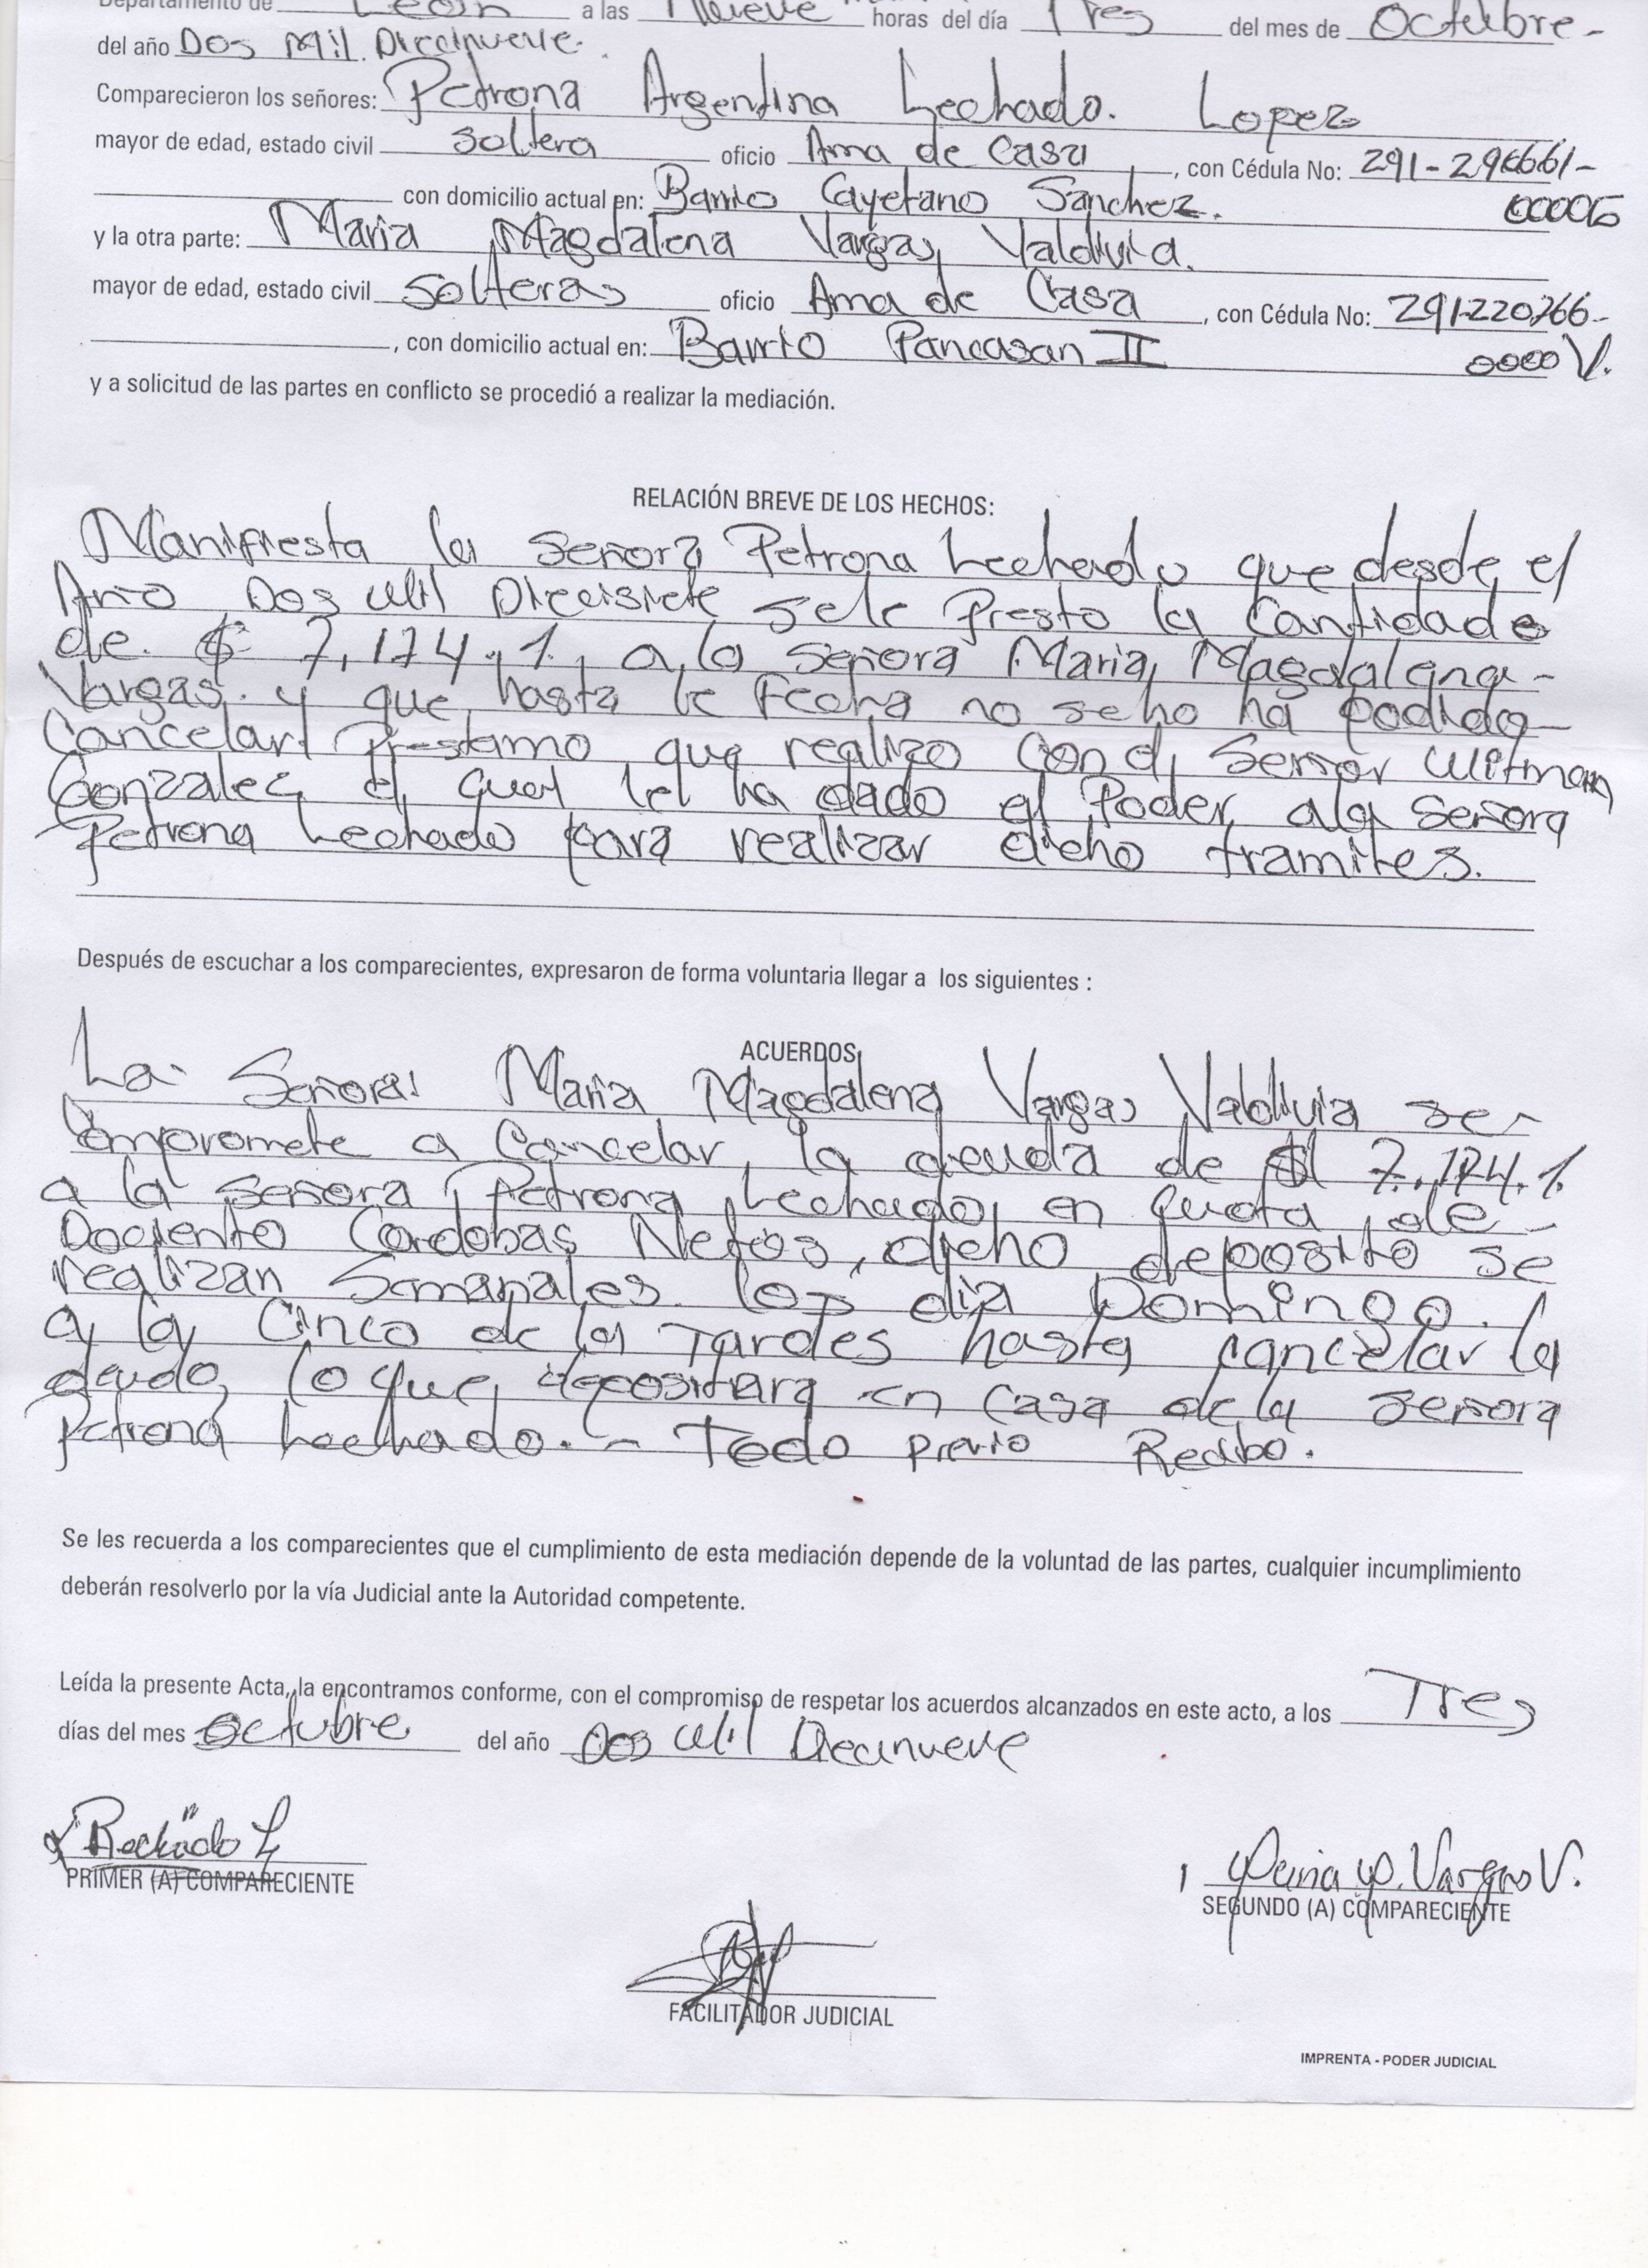 Departamento de León a las Nueve horas del día Tres del mes de Octubre-
del año Dos Mil. Diecinueve.
Comparecieron los señores: Petrona Argentina Lechado. Lopez
mayor de edad, estado civil soltera oficio Ama de Casa, con Cédula No: 291-290661-
con domicilio actual en: Barrio Cayetano Sanchez. 0000G
y la otra parte: Maria Magdalena Vargas Valdivia.
mayor de edad, estado civil solteras oficio Ama de Casa, con Cédula No: 291220766-
, con domicilio actual en: Barrio Pancasan II 0000V.
y a solicitud de las partes en conflicto se procedió a realizar la mediación.
RELACIÓN BREVE DE LOS HECHOS:
Manifiesta la señora Petrona Lechado que desde el
Año Dos Mil Diecisiete sele Presto la Cantidade
de. $ 7,174.1, a la señora Maria Magdalena-
Vargas. y que hasta la Fecha no se ho ha podido-
Cancelar Prestamo que realizo con el Señor Wilman
Gonzalez el qual lel ha dado el Poder ala señora
Petrona Lechado para realizar dicho tramites.
Después de escuchar a los comparecientes, expresaron de forma voluntaria llegar a los siguientes :
ACUERDOS
La. Señora: Maria Magdalena Vargas Valdivia se-
Compromete a Cancelar, la deuda de $ 7.174.1.
a la señora Petrona Lechado en quota de-
Dociento Cordobas Netos, dicho deposito se
realizan Semanales los dia Domingo.
a la Cinco de la Tardes hasta cancelar la
deuda, lo que depositara en casa de la señora
Petrona Lechado.- Todo previo Recibo.
Se les recuerda a los comparecientes que el cumplimiento de esta mediación depende de la voluntad de las partes, cualquier incumplimiento
deberán resolverlo por la vía Judicial ante la Autoridad competente.
Leída la presente Acta, la encontramos conforme, con el compromiso de respetar los acuerdos alcanzados en este acto, a los Tres
días del mes Octubre del año Dos Mil Diecinueve
Rechado L
PRIMER (A) COMPARECIENTE
Maria M. Vargas V.
SEGUNDO (A) COMPARECIENTE
FACILITADOR JUDICIAL
IMPRENTA - PODER JUDICIAL